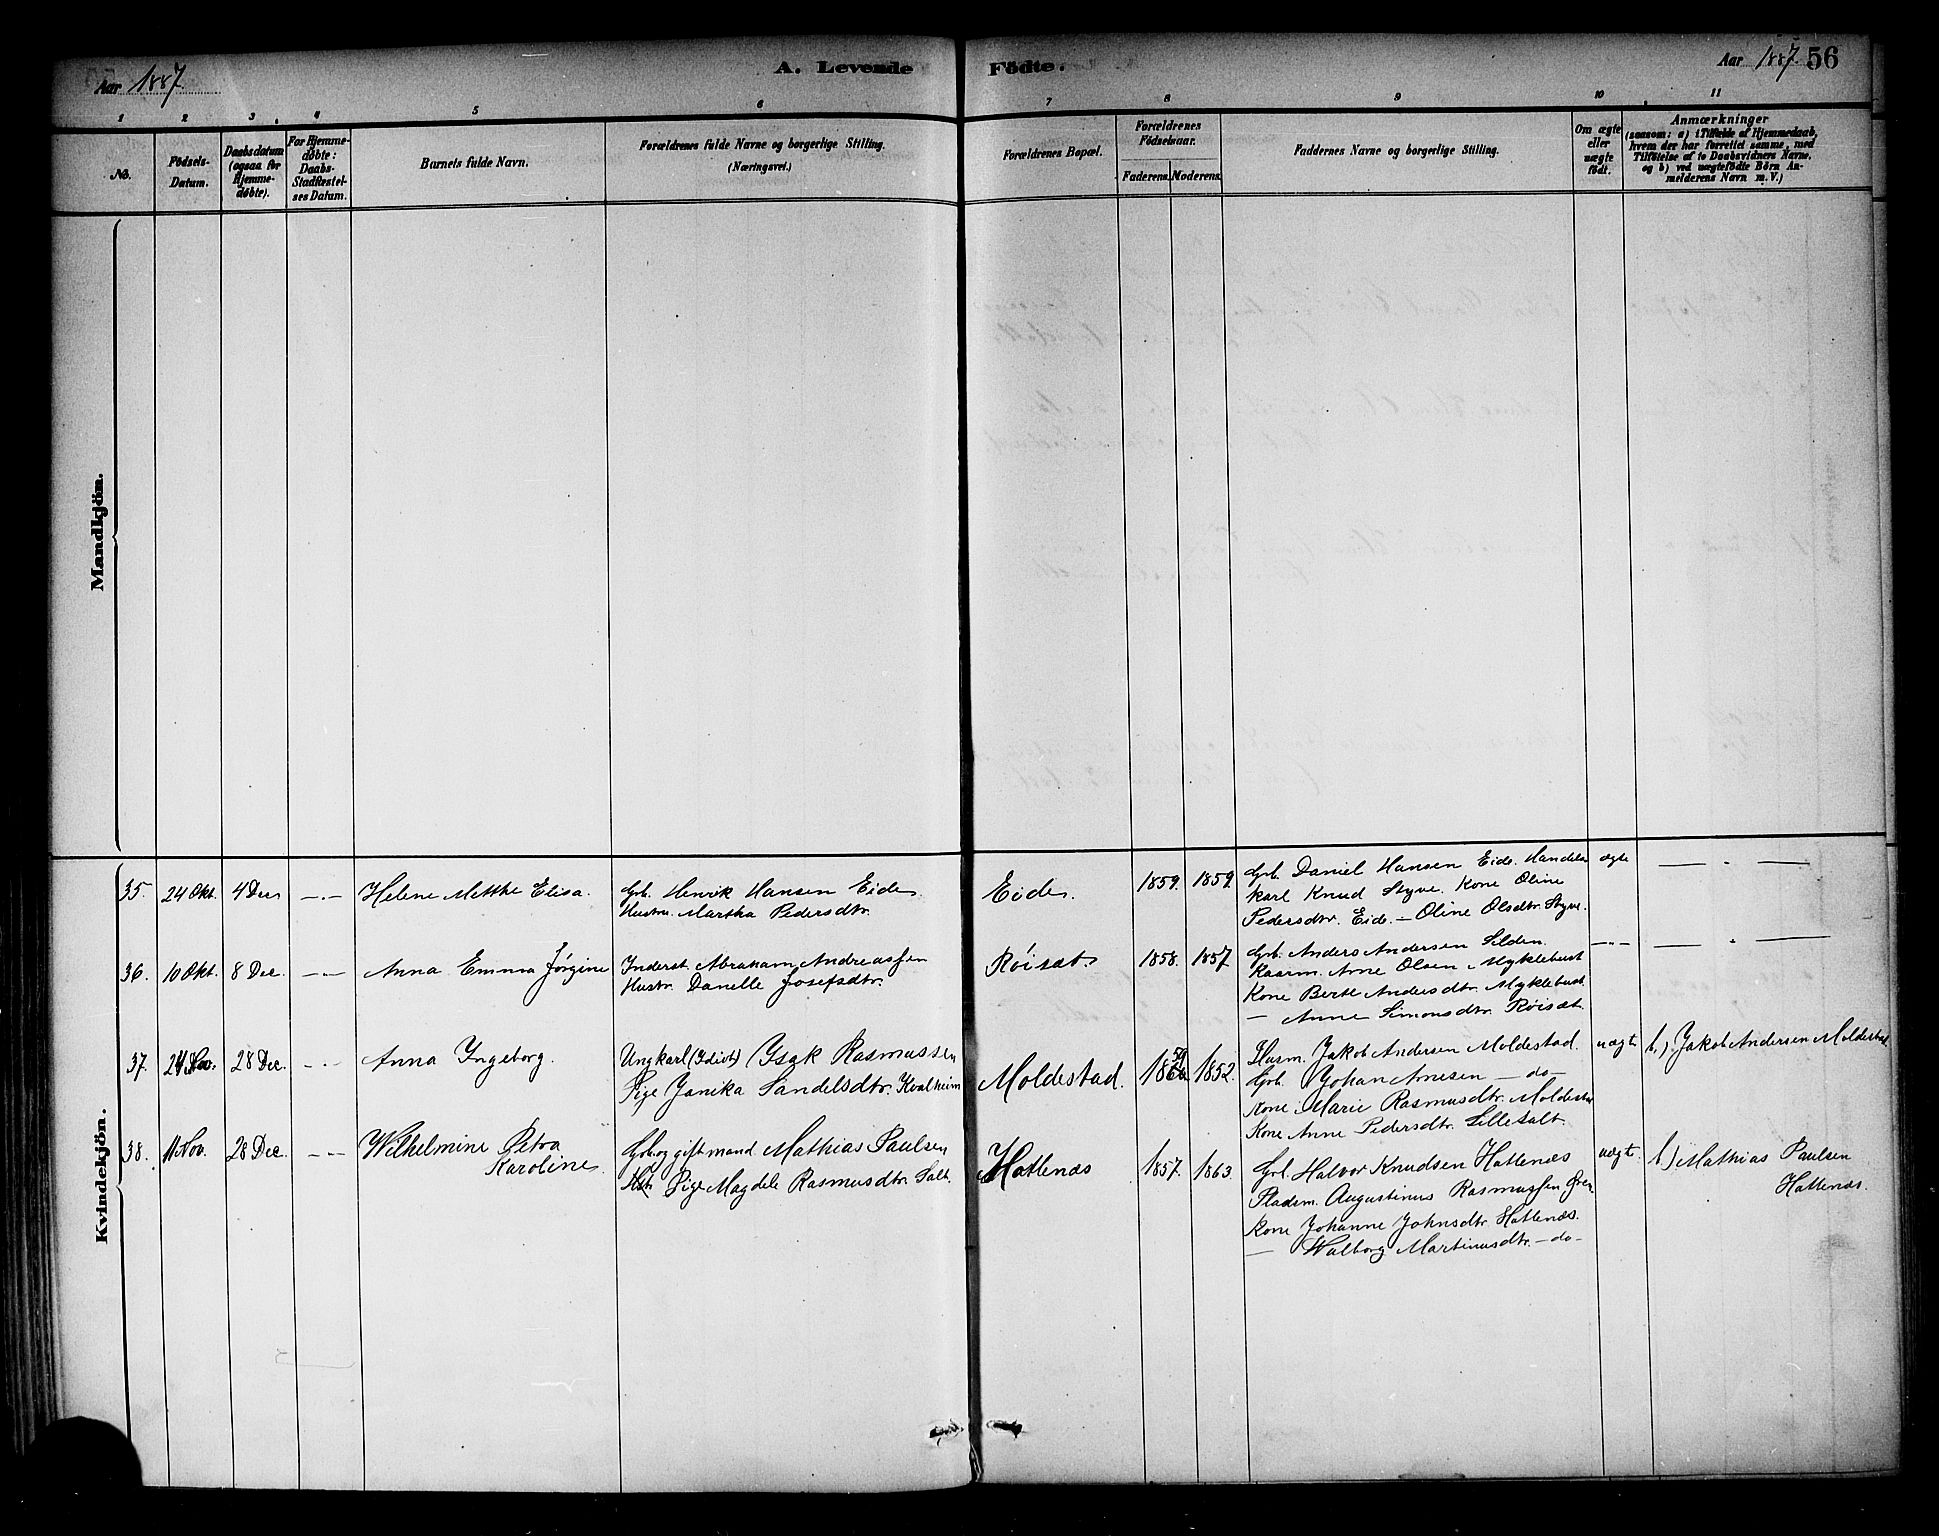 Aar 1887.
A. Levende Födte.
Aar 1887. 56
1 2 3. 4 5 6 7 8 9 10 11
No.
Födsels-
Datum.
Daabsdatum
(ogsaa for
Hjemme-
døbte).
For Hjemme-
døbte:
Daabs-
Stadfæstel-
ses Datum.
Barnets fulde Navn.
Forældrenes fulde Navne og borgerlige Stilling.
(Næringsvei.)
Forældrenes Bopæl.
Forældrenes
Födselsaar.
Faderens. Moderens.
Faddernes Navne og borgerlige Stilling.
Om ægte
eller
uægte
födt.
Anmærkninger
(saasom: a) i Tilfælde af Hjemmedaab,
hvem der har forrettet samme, med
Tilföielse af to Daabsvidners Navne,
og b) ved uægtefödte Börn An-
melderens Navn m. V.)
Mandkjön.
Kvindekjön.
35. 24 Okt. 4 Dec. —.— Helene Metthe Elisa.
Grb. Henrik Hansen Eide
Hustru Martha Pedersdtr.
Eide. 1859. 1859.
Grb. Daniel Hansen Eide. Handels
karl Knud Styve. Kone Oline
Pedersdtr. Eide. — Oline Olsdtr. Styve.
ægte — . —
36. 10 Okt. 8 Dec. —.— Anna Emma Jørgine
Inderst. Abraham Andreassen
Hustr. Danelle Josefsdtr.
Røisæt. 1858. 1857
Grb. Anders Andersen Silden.
Kaarm. Arne Olsen Myklebust
Kone Berte Andersdtr. Myklebust.
— Anne Simonsdtr. Røisæt.
—"— — . —
37. 24 Nov. 28 Dec. —.— Anna Ingeborg.
Ungkarl (Idiot) Isak Rasmussen
Pige Janika Sandelsdtr. Kvalheim
Moldestad. 1859 1852.
Husm. Jakob Andersen Moldestad.
Grb. Johan Arnesen — do —
Kone Marie Rasmusdtr. Moldestad
Kone Anne Pedersdtr. Lillesalt.
uægt. b.) Jakob Andersen Moldestad.
38. 11 Nov. 28 Dec. —.— Wilhelmine Petra
Karoline.
Grb. og gift mand Mathias Paulsen
Pige Magdele Rasmusdtr. Salt.
Hatlenæs 1857. 1863.
Grb. Halvor Knudsen Hatlenæs
Pladsm. Augustinus Rasmussen
Kone Johanne Johnsdtr. Hatlenæs.
— Walborg Martinusdtr. — do —
uægt. b.) Mathias Paulsen
Hatlenæs.